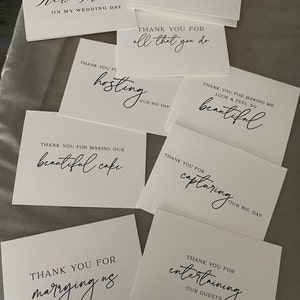 ON MY WEDDING DAY
THANK YOU FOR
all that you do
THANK YOU FOR
hosting
OUR BIG DAY
THANK YOU FOR MAKING ME
LOOK & FEEL SO
beautiful
THANK YOU FOR MAKING OUR
beautiful cake
THANK YOU FOR
capturing
OUR BIG DAY
THANK YOU FOR
marrying us
THANK YOU FOR
entertaining
OUR GUESTS